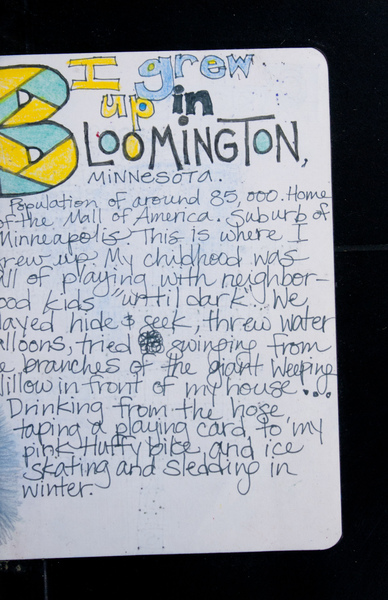 I grew
up in
BLOOMINGTON,
MINNESOTA.
Population of around 85,000. Home
of the Mall of America. Suburb of
Minneapolis. This is where I
rew up. My childhood was
all of playing with neighbor-
ood kids "until dark". We
layed hide & seek, threw water
alloons, tried swinging from
e branches of the giant Weeping
Willow in front of my house...
Drinking from the hose
taping a playing card to my
pink Huffy bike and ice
skating and sledding in
winter.